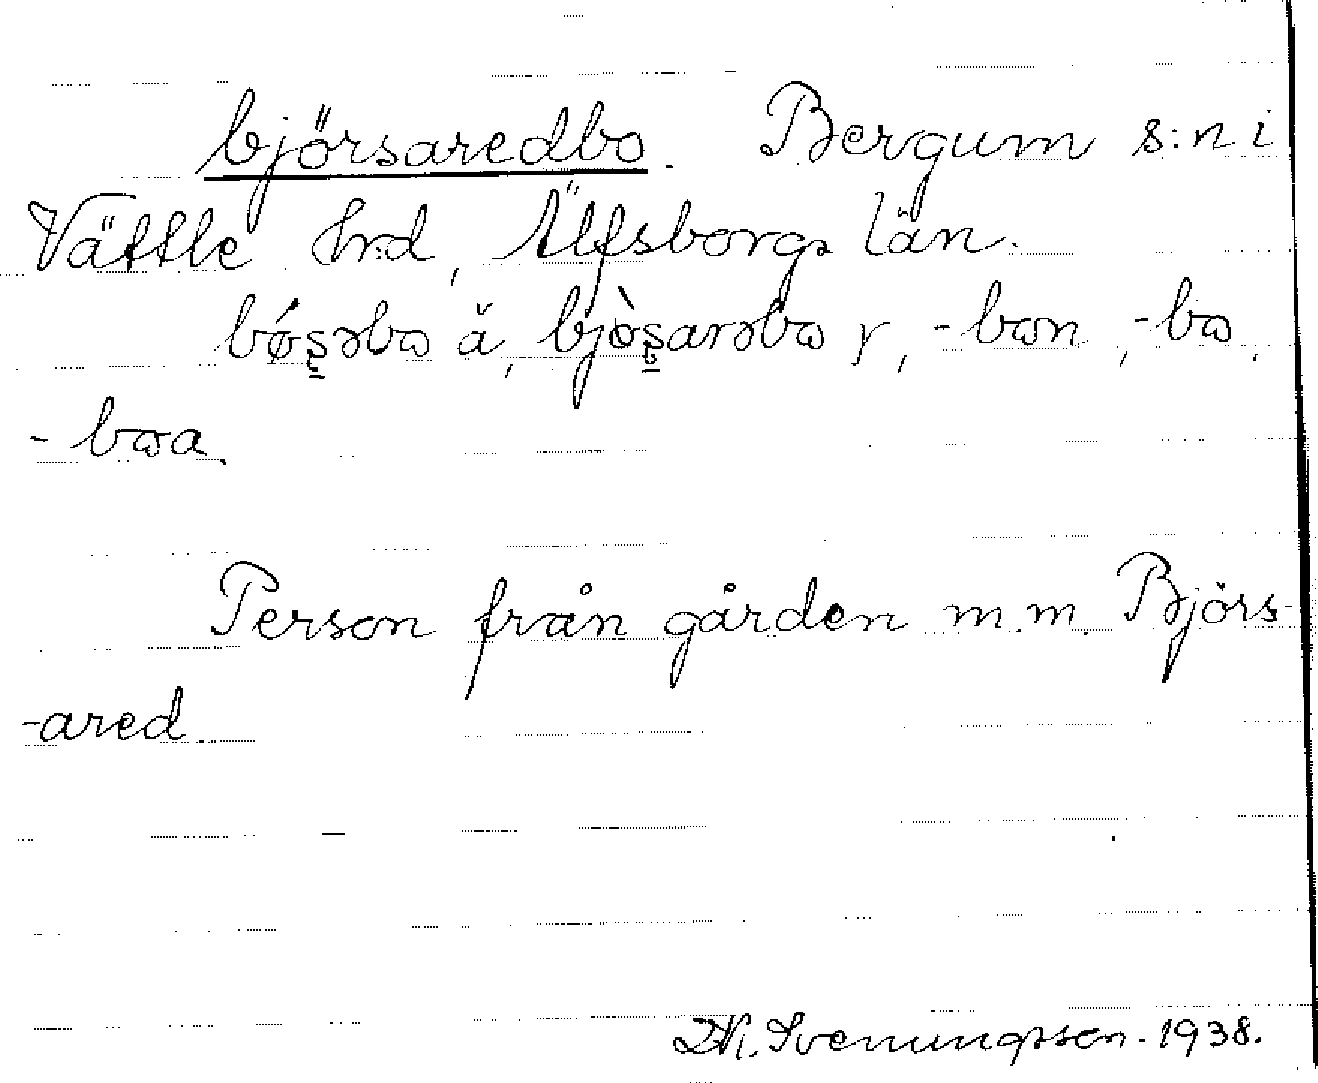 björsaredbo. Bergum s:n i
Vättle hrd, Älfsborgs län.
bǿşəbɷ ă, bjòşarəbɷ y, -bɷn, -bɷ,
-bɷa.
Person från gården m.m. Björs-
-ared.
Svenungsson. 1938.